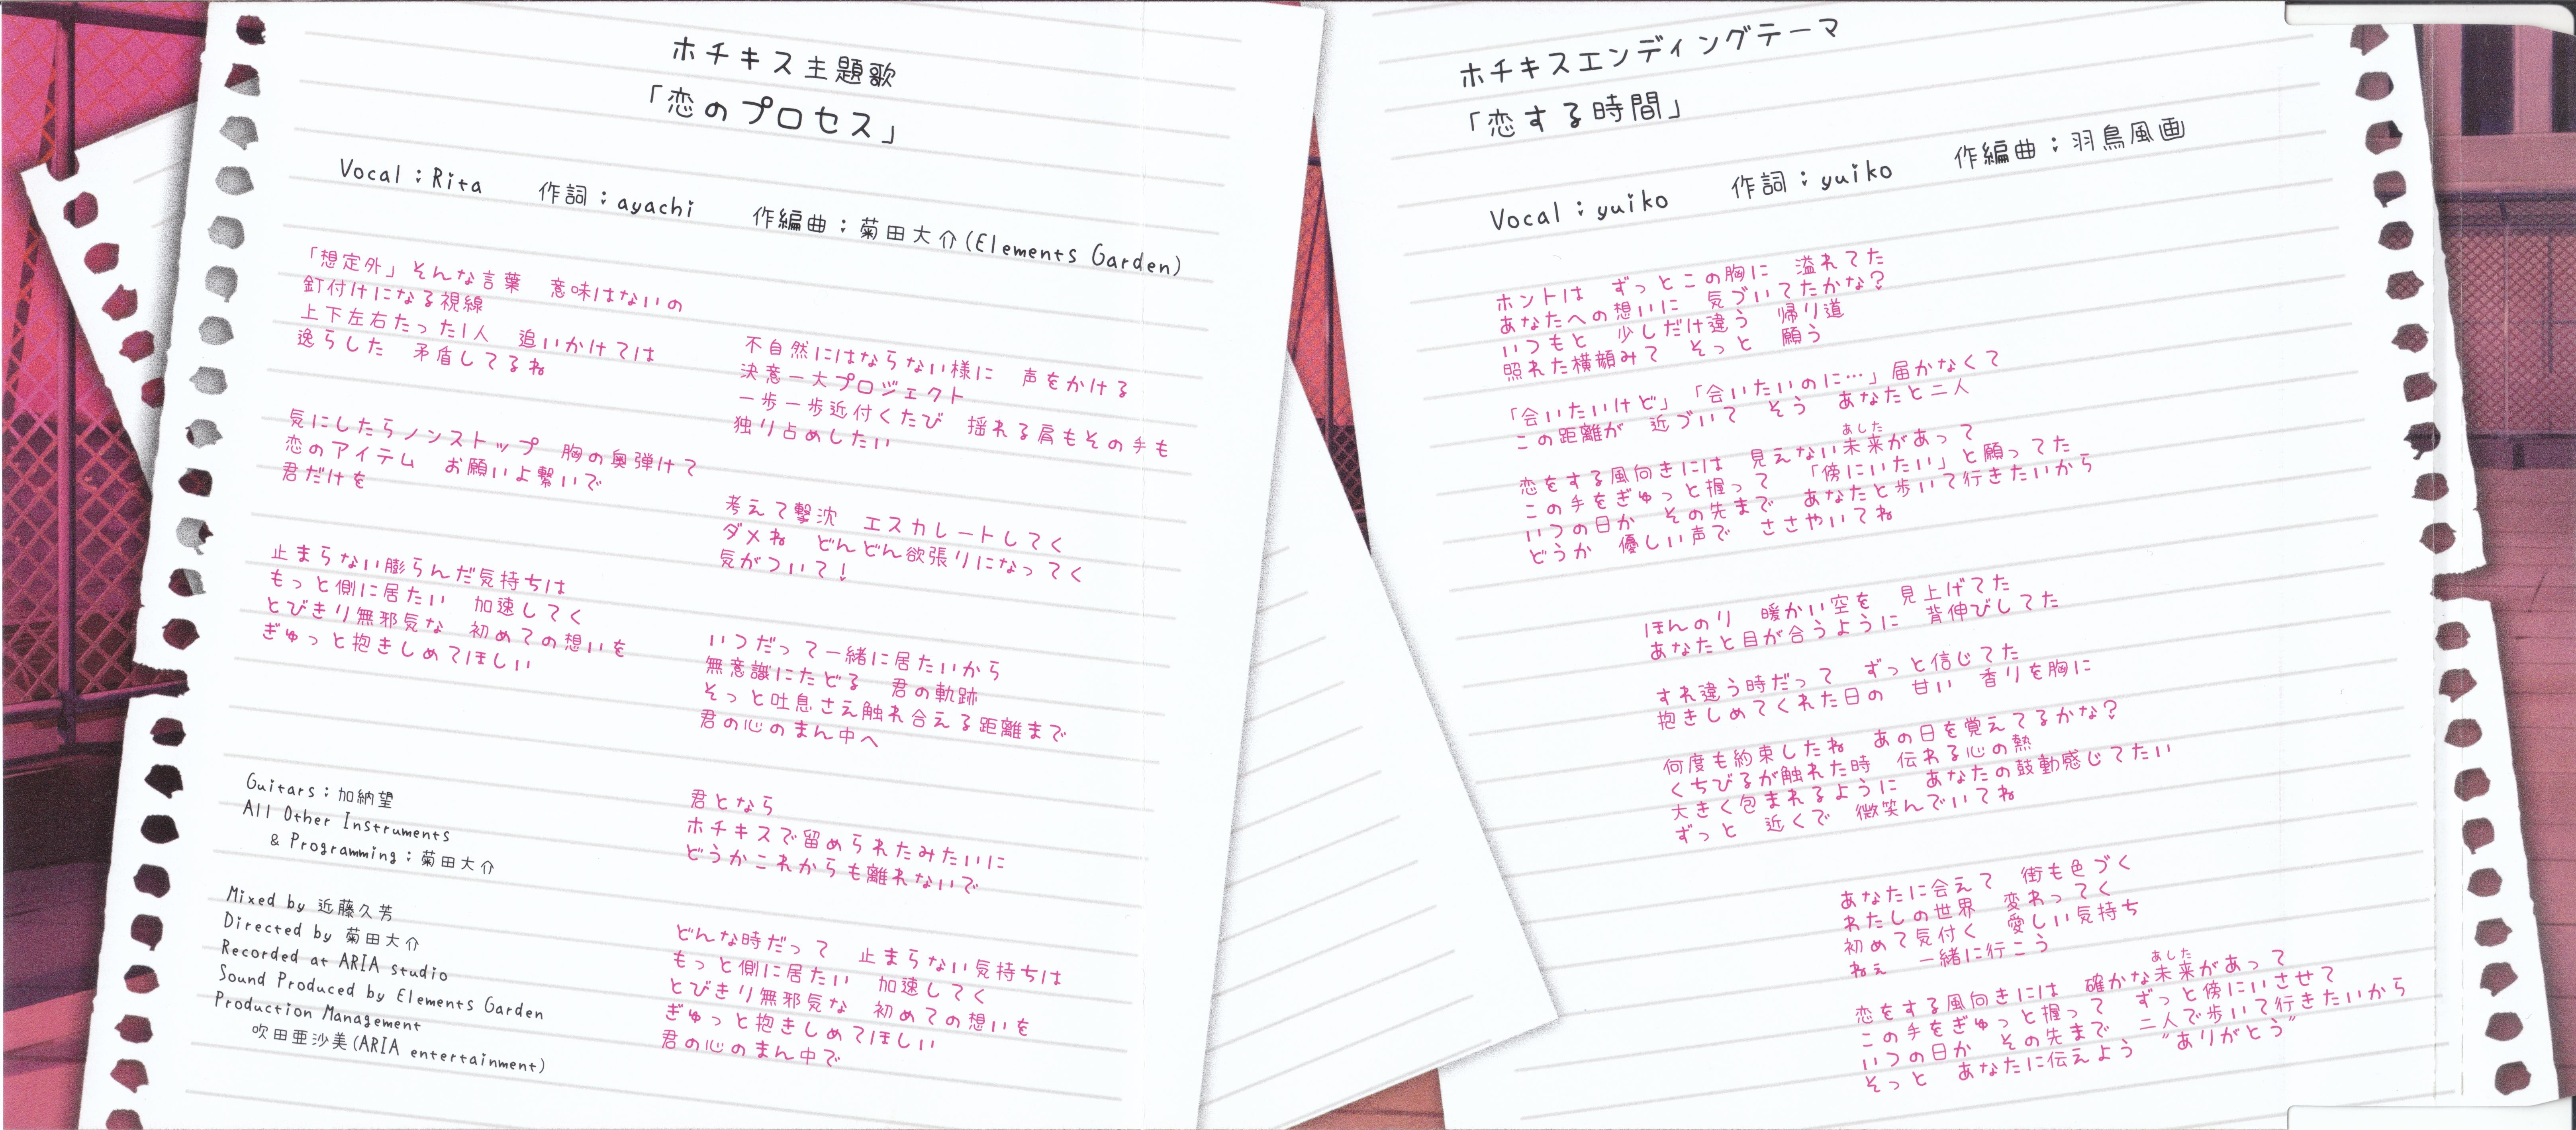 ホチキス主題歌
「恋のプロセス」
Vocal：Rita　作詞：ayachi　作編曲：菊田大介(Elements Garden)
「想定外」そんな言葉　意味はないの
釘付けになる視線
上下左右たった1人　追いかけては
逸らした　矛盾してるね
気にしたらノンストップ　胸の奥弾けて
恋のアイテム　お願いよ繋いで
君だけを
止まらない膨らんだ気持ちは
もっと側に居たい　加速してく
とびきり無邪気な　初めての想いを
ぎゅっと抱きしめてほしい
不自然にはならない様に　声をかける
決意一大プロジェクト
一歩一歩近付くたび　揺れる肩もその手も
独り占めしたい
考えて撃沈　エスカレートしてく
ダメね　どんどん欲張りになってく
気がついて！
いつだって一緒に居たいから
無意識にたどる　君の軌跡
そっと吐息さえ触れ合える距離まで
君の心のまん中へ
君となら
ホチキスで留められたみたいに
どうかこれからも離れないで
どんな時だって　止まらない気持ちは
もっと側に居たい　加速してく
とびきり無邪気な　初めての想いを
ぎゅっと抱きしめてほしい
君の心のまん中で
Guitars：加納望
All Other Instruments
& Programming：菊田大介
Mixed by 近藤久芳
Directed by 菊田大介
Recorded at ARIA studio
Sound Produced by Elements Garden
Production Management
吹田亜沙美(ARIA entertainment)
ホチキスエンディングテーマ
「恋する時間」
Vocal：yuiko　作詞：yuiko　作編曲：羽鳥風画
ホントは　ずっとこの胸に　溢れてた
あなたへの想いに　気づいてたかな？
いつもと　少しだけ違う　帰り道
照れた横顔みて　そっと　願う
「会いたいけど」「会いたいのに…」届かなくて
この距離が　近づいて　そう　あなたと二人
あした
恋をする風向きには　見えない未来があって
この手をぎゅっと握って　「傍にいたい」と願ってた
いつの日か　その先まで　あなたと歩いて行きたいから
どうか　優しい声で　ささやいてね
ほんのり　暖かい空を　見上げてた
あなたと目が合うように　背伸びしてた
すれ違う時だって　ずっと信じてた
抱きしめてくれた日の　甘い　香りを胸に
何度も約束したね　あの日を覚えてるかな？
くちびるが触れた時　伝れる心の熱
大きく包まれるように　あなたの鼓動感じてたい
ずっと　近くで　微笑んでいてね
あなたに会えて　街も色づく
わたしの世界　変わってく
初めて気付く　愛しい気持ち
ねぇ　一緒に行こう
あした
恋をする風向きには　確かな未来があって
この手をぎゅっと握って　ずっと傍にいさせて
いつの日か　その先まで　二人で歩いて行きたいから
そっと　あなたに伝えよう　"ありがとう"